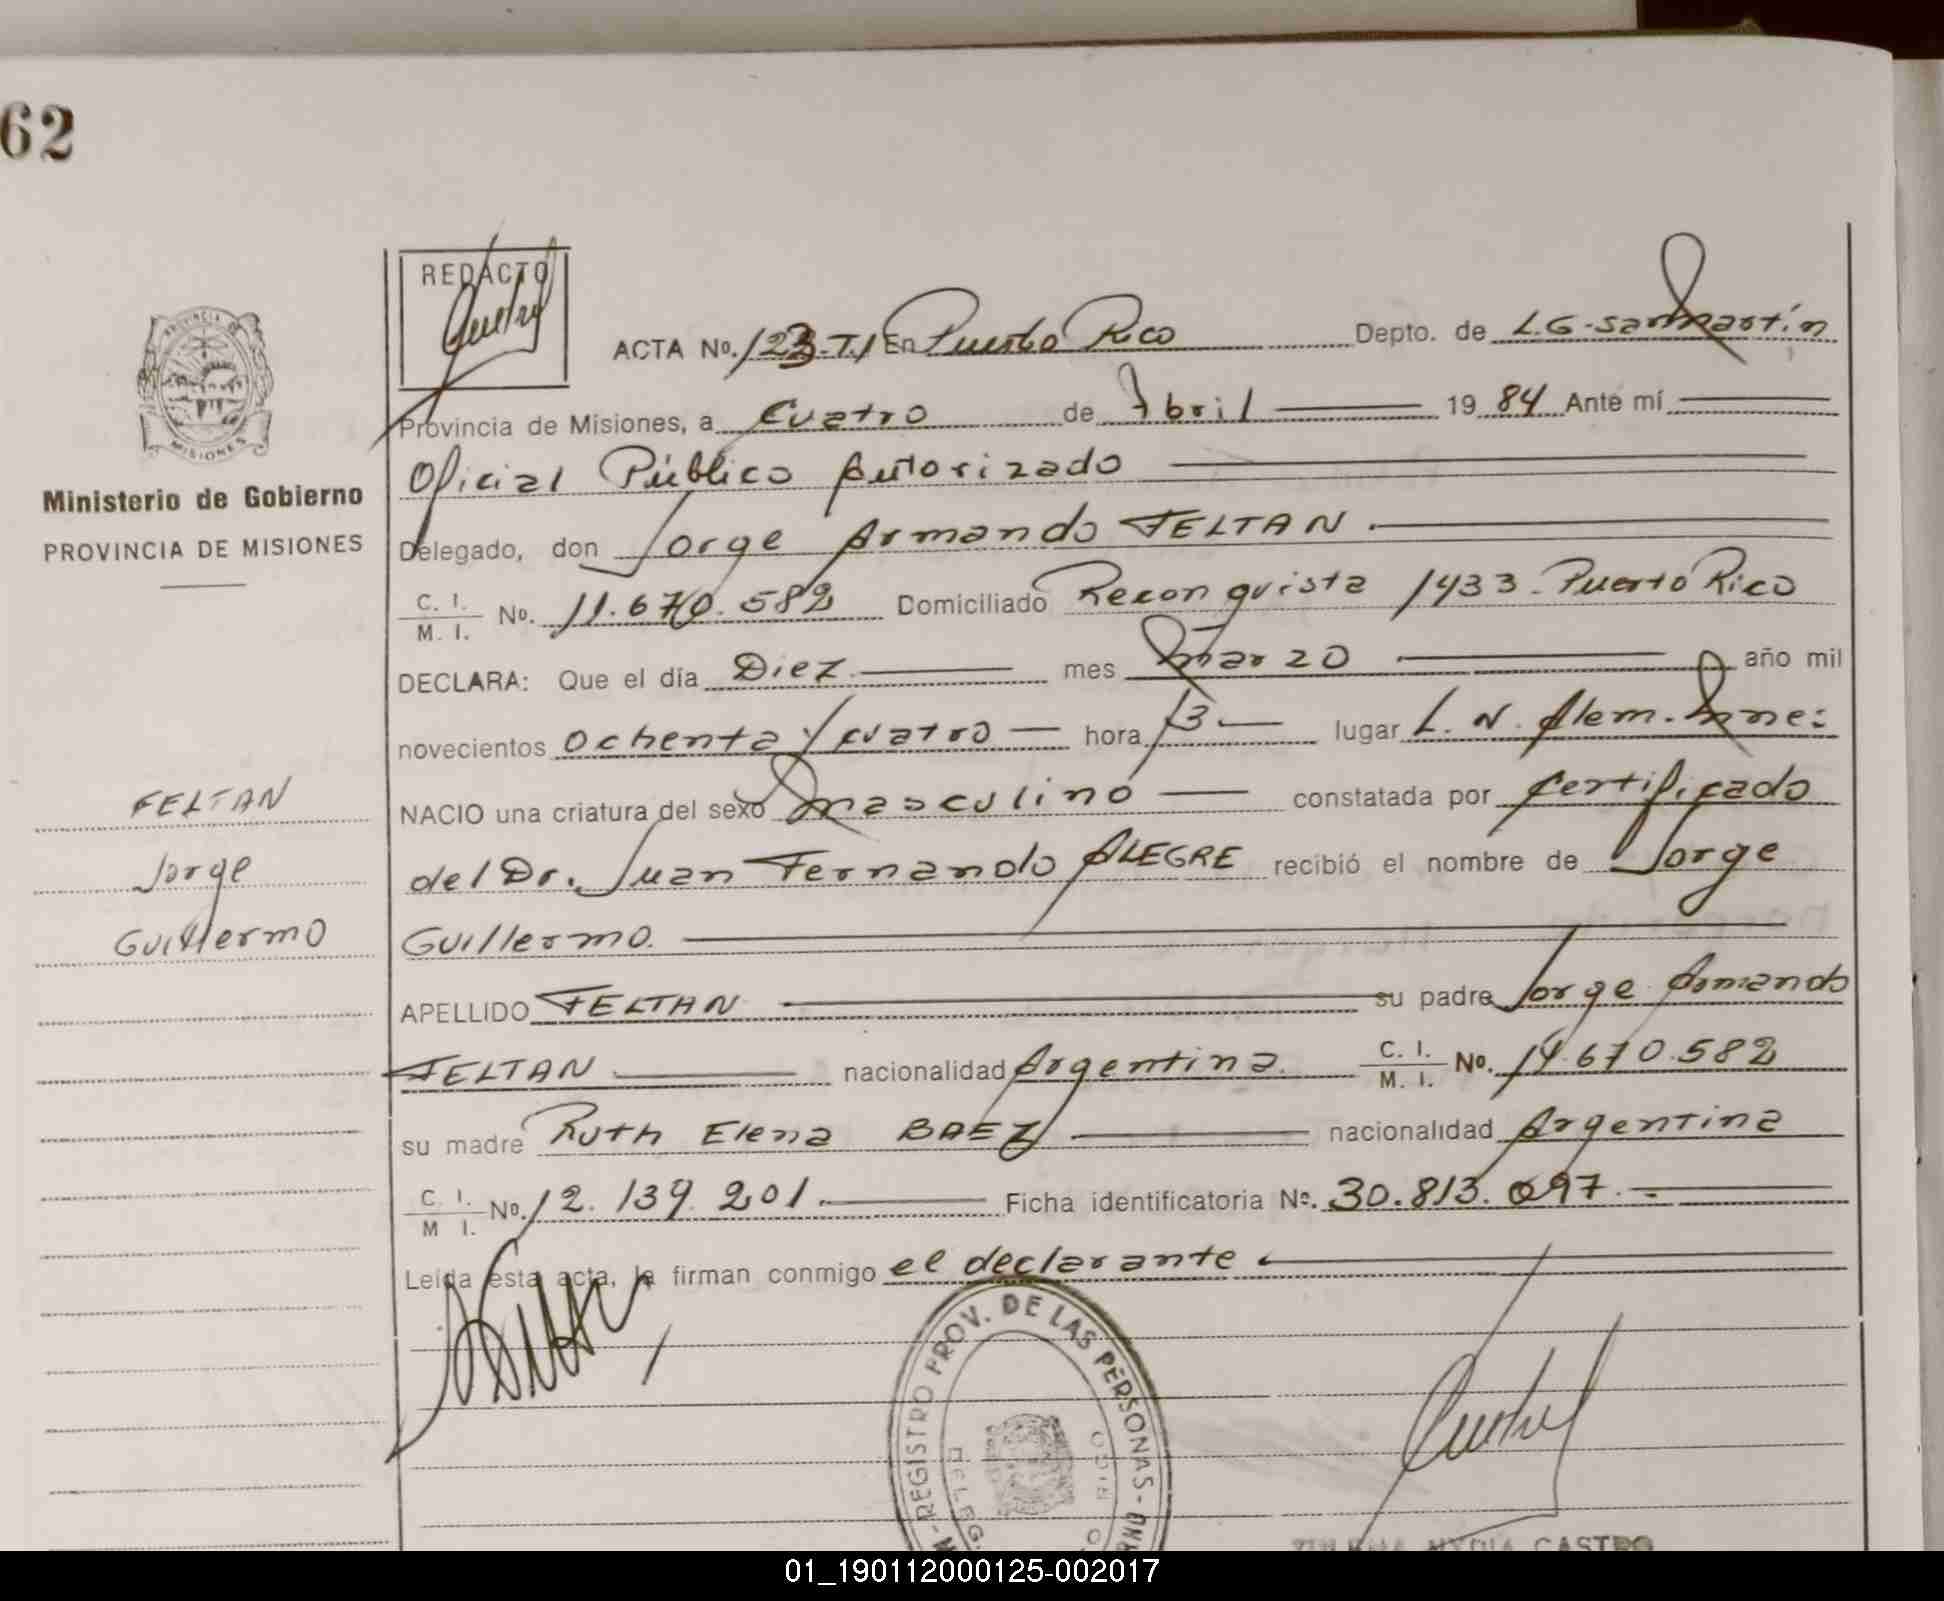 62
REDACTO
ACTA No. 123-T.I En Puerto Rico Depto. de L.G. San Martín
Provincia de Misiones, a Cuatro de Abril 19 84 Ante mí
Oficial Público Autorizado
Delegado, don Jorge Armando FELTAN
C. I.
M. I. No. 11.670.582 Domiciliado Reconquista 1433. Puerto Rico
DECLARA: Que el día Diez mes Marzo año mil
novecientos ochenta y cuatro hora 13 lugar L. N. Alem. Mnes:
NACIO una criatura del sexo masculino constatada por Certificado
del Dr. Juan Fernando ALEGRE recibió el nombre de Jorge
Guillermo.
APELLIDO FELTAN su padre Jorge Armando
FELTAN nacionalidad Argentina. C. I.
M. I. No. 14.670.582
su madre Ruth Elena BAEZ nacionalidad Argentina
C. I.
M I. No. 12.139.201. Ficha identificatoria Nº. 30.813.097.-
Leída esta acta, la firman conmigo el declarante
PROVINCIA DE
MISIONES
Ministerio de Gobierno
PROVINCIA DE MISIONES
FELTAN
Jorge
Guillermo
REGISTRO PROV. DE LAS PERSONAS
DELEG.
CASTRO
01_190112000125-002017